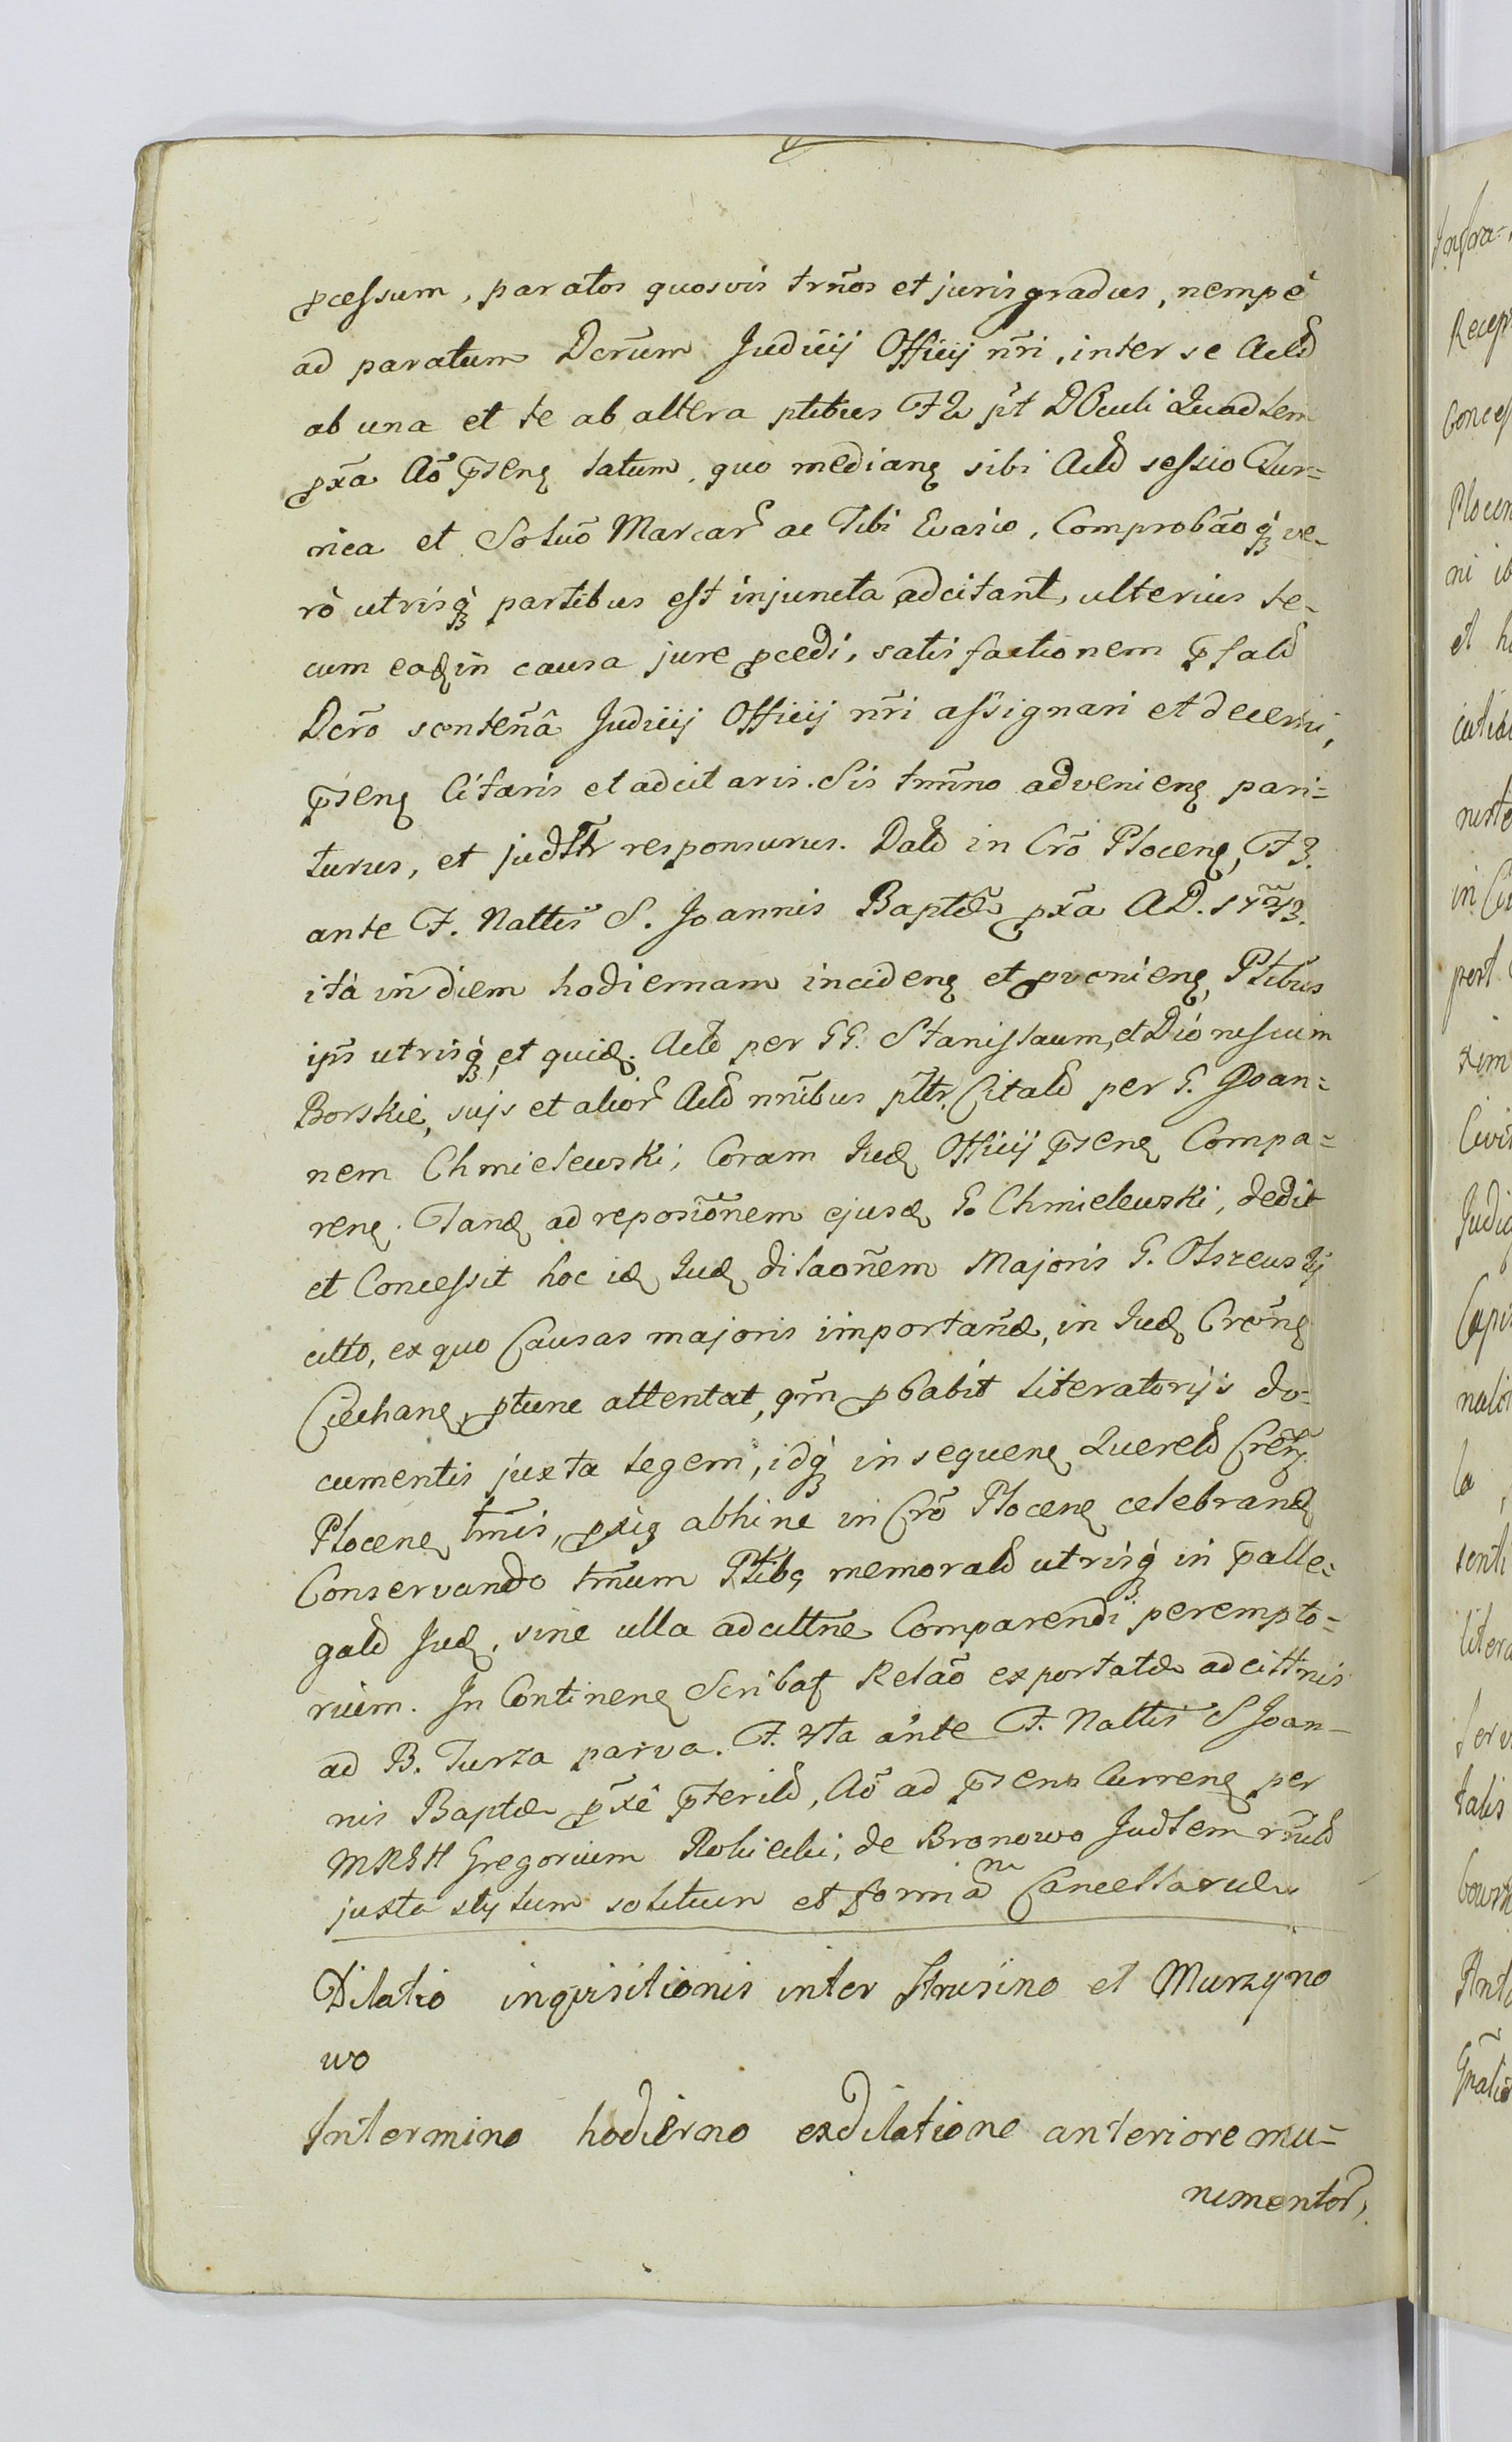 pcessum, paratos quosvis trños et juris gradus, nempè
ad paratum Dcrũm Judicij Officij ñri, inter se Actõ
ab una et te ab altera ptibus F2 p̃t DOculi Quadtem
px̃a Aõ p̃seng latum, quo mediang sibi Actõ sessio Tur=
nea et Solũo Marcar̃ ac Tibi Evasio, Comprobãoq̃ ve-
rò utrisq̃ partibus est injuncta adcitañt, ulterius te-
cum eaq̃ in causa jure pcedi, satisfactionem p̃fatõ
Dcr̃o senteñâ Judicij Officij ñri assignari et decerni,
p̃seng Citaris et adcitaris. Sis tm̃ino advenieng pari=
turus, et judltr responsurus. Datõ in Cr̃o Ploceng, F3.
ante F. Nattis S. Joannis Baptæ px̃a AD. 1743.
ità in diem hodiernam incideng et pvenieng, Ptibus
ip̃is utrisq̃, et quid. Actõ per GG. Stanislaum, et Dionesium
Borskie, sujs et alior̃ Actõ nr̃ibus pltr. Citatõ per G. Joan=
nem Chmielewski, Coram Jud Officij p̃seng Compa=
reng. Tand ad reposiõnem ejusd G. Chmielewski, dedit
et Concessit hoc id Jud dilaoñem Majoris G. Olszewskij
citto, ex quo Causas majoris importañd, in Jud Crõng
Ciechang, ptunc attentat, qm̃ pbabit literatorijs do-
cumentis juxta legem, idq̃ in sequeng Querelõ Cr̃etrz
Ploceng tm̃is, pxig abhinc in Cr̃o Ploceng celebrand
Conservando tm̃um Ptibg memoratõ utrisq̃ in p̃alle=
gatõ Jud, sine ulla adcittne Comparendi perempto=
rium. In Contineng Scribaf Relaõ exportatæ adcittnis
ad B. Turza parva. F. 4ta ante F. Nattis S Joan-
nis Baptæ px̃ê p̃teritõ, Aõ ad p̃sens Curreng per
MRGH Gregorium Robiecki, de Bronowo Judtem r̃ectõ
juxta stylum solitum et formam Cancellariæ
Dilatio inquisitionis inter Strusino et Murzyno
wo
Intermino hodierno exdilatione anteriore mu=
nimentor̃,